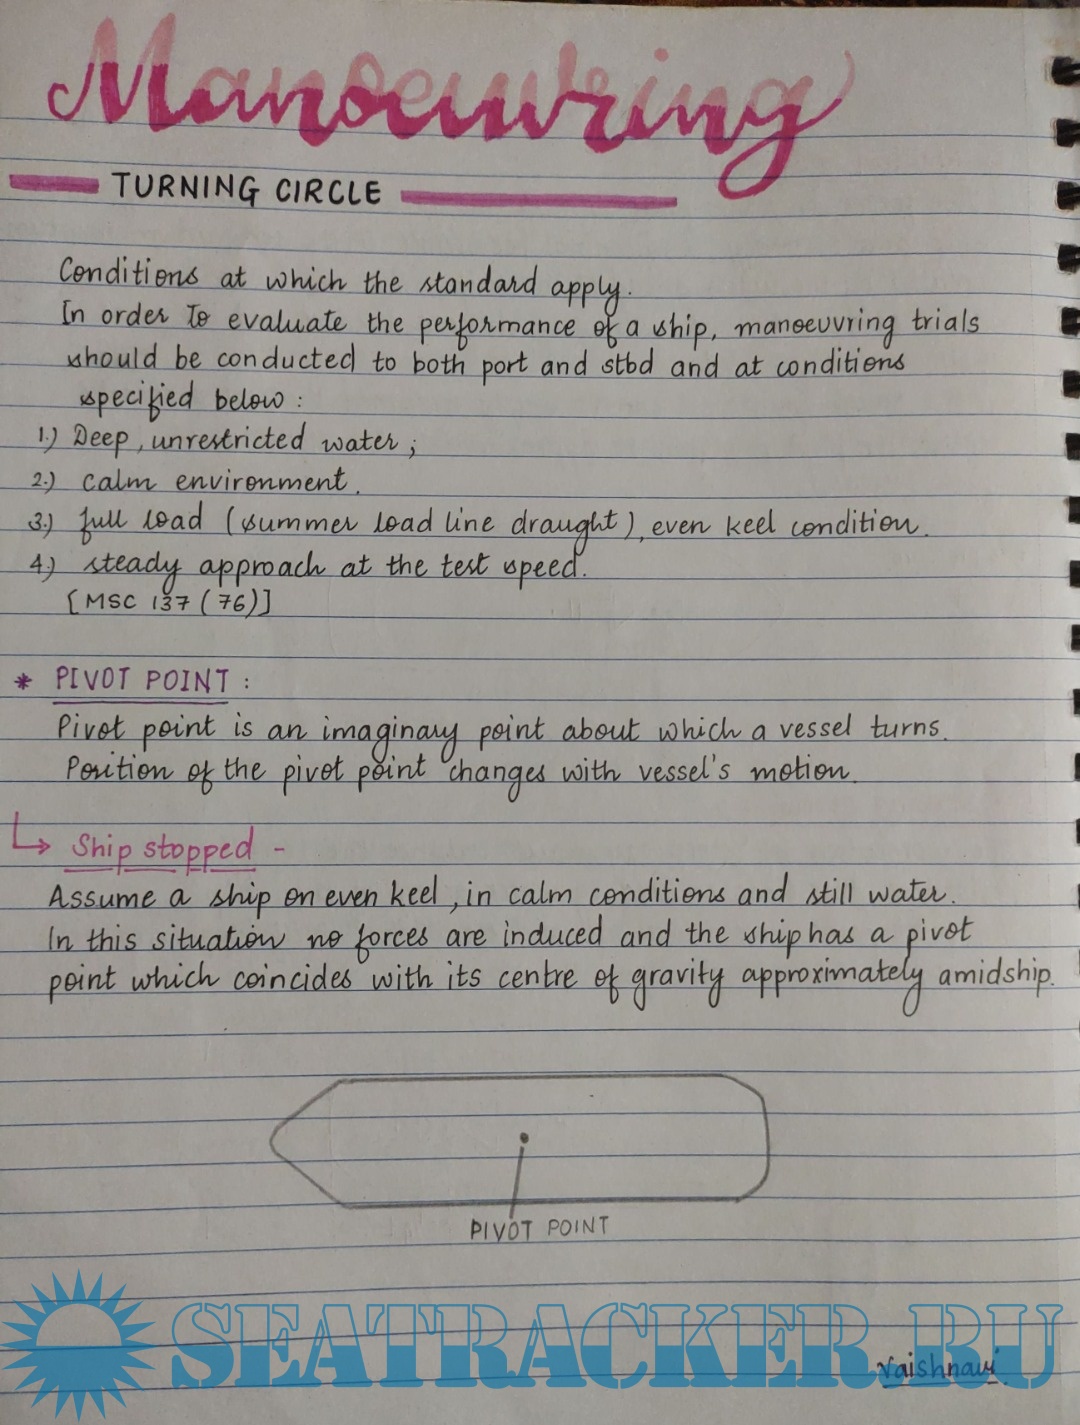 Manoeuvring
TURNING CIRCLE
Conditions at which the standard apply.
In order To evaluate the performance of a ship, manoeuvring trials
should be conducted to both port and stbd and at conditions
specified below :
1.) Deep, unrestricted water ;
2.) calm environment.
3.) full load (summer load line draught), even keel condition.
4.) steady approach at the test speed.
[MSC 137 (76)]
* PIVOT POINT :
Pivot point is an imaginary point about which a vessel turns.
Position of the pivot point changes with vessel's motion.
↳ Ship stopped -
Assume a ship on even keel, in calm conditions and still water.
In this situation no forces are induced and the ship has a pivot
point which coincides with its centre of gravity approximately amidship.
PIVOT POINT
SEATRACKER.RU
Vaishnavi